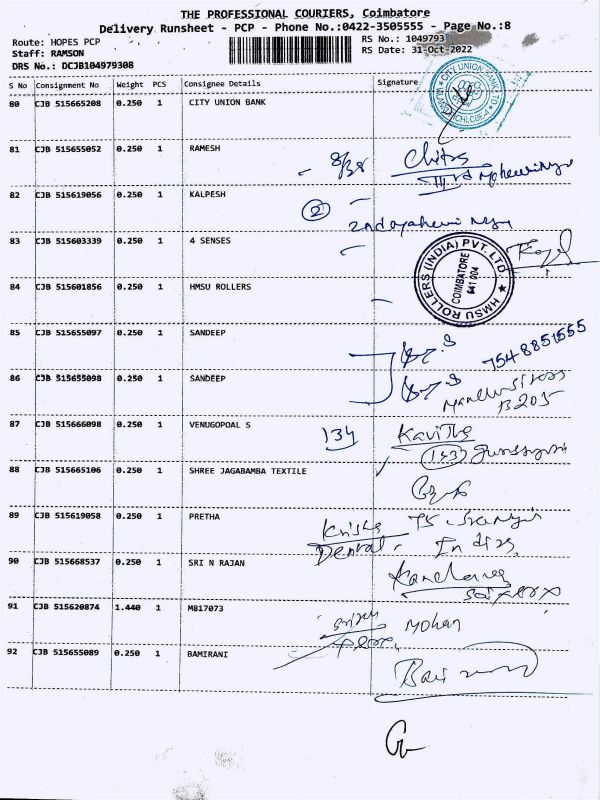 THE PROFESSIONAL COURIERS, Coimbatore
Delivery Runsheet - PCP - Phone No.:0422-3505555 - Page No.:8
Route: HOPES PCP
RS No.: 1049793
Staff: RAMSON
RS Date: 31-Oct-2022
DRS No.: DCJB104979308
S No Consignment No Weight PCS Consignee Details Signature
80 CJB 515665208 0.250 1 CITY UNION BANK
CITY UNION BANK LTD
81 CJB 515655052 0.250 1 RAMESH
Chitra
82 CJB 515619056 0.250 1 KALPESH
2
83 CJB 515603339 0.250 1 4 SENSES
84 CJB 515601856 0.250 1 HMSU ROLLERS
HMSU ROLLERS (INDIA) PVT. LTD
COIMBATORE
641 004
85 CJB 515655097 0.250 1 SANDEEP
7548851555
86 CJB 515655098 0.250 1 SANDEEP
B205
87 CJB 515666098 0.250 1 VENUGOPAL S
134 Kavitha
88 CJB 515665106 0.250 1 SHREE JAGABAMBA TEXTILE
89 CJB 515619058 0.250 1 PRETHA
Dental
90 CJB 515668537 0.250 1 SRI N RAJAN
91 CJB 515620874 1.440 1 M817073
Mohan
92 CJB 515655089 0.250 1 BAMIRANI